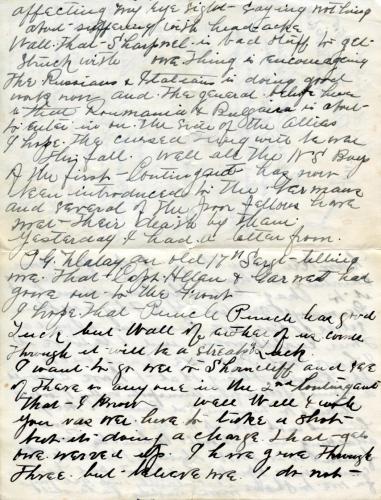 affecting my eye sight - saying nothing
about suffering with headache
Wall that Sharpnel is bad stuff to get
Struck with one thing is encouraging
The Russians & Italians is doing good
work now and the general belief here
is that Roumania & Bulgaria is about
to enter in on the side of the Allies
I hope the cursed thing will be over
this fall. Well all the NS Boys
of the first Contingent has now
been introduced to the Germans
and several of the poor fellows have
met their death by them
yesterday I had a letter from
J G an old 17th Sergt telling
me that Capt & had
gone out to the Front
I hope that Punch has good
Luck but Wall if either of us come
through it will be a streak of Luck
I want to go over to Shorncliff and see
if there is any one in the 2nd contingent
that I know Well Well I wish
you was over here to take a shot
but its doing a charge that gets
one worked up. I have gone through
three but believe me I do not